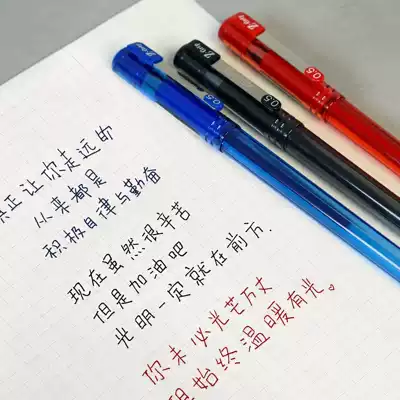 真正让你走远的
从来都是
积极自律与勤奋
现在虽然很辛苦
但是加油吧
光明一定就在前方.
你未必光芒万丈
但始终温暖有光。
0.5
0.5
0.5